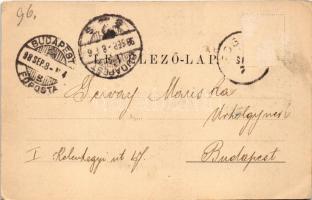 96.
BUDAPEST
98 SEP. 8
FŐPOSTA
BUDAPEST
LEVELEZŐ-LAP
Gervay Mariska
Úrhölgynek
I Kelenhegyi út 47.
Budapest